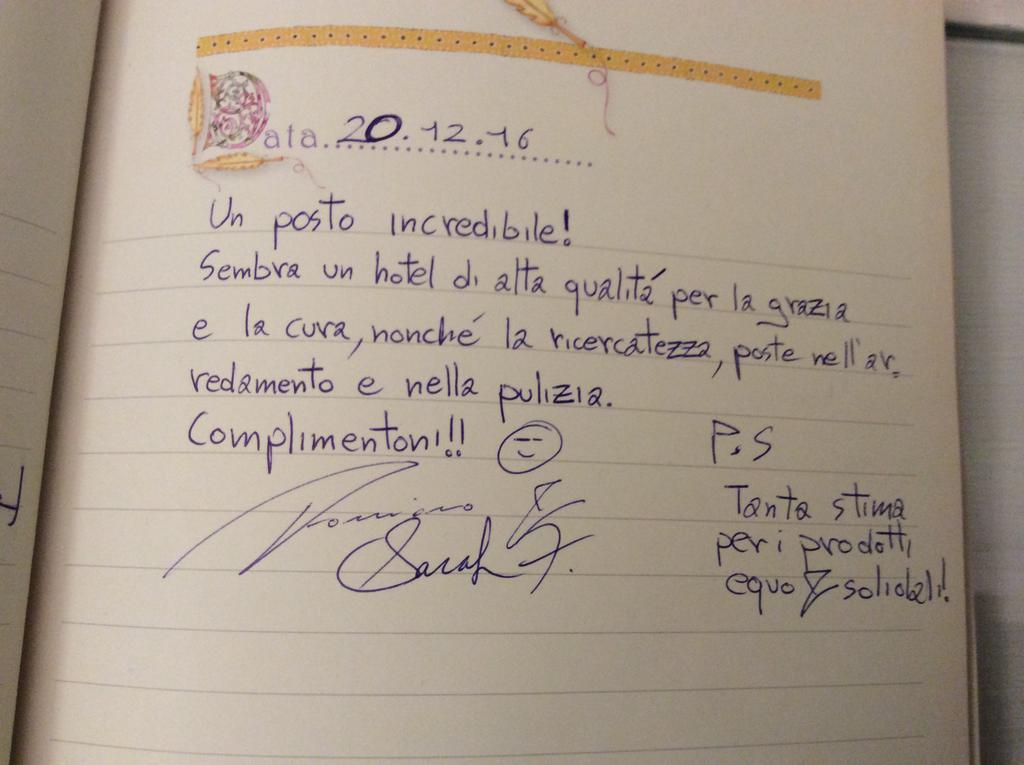 Data. 20.12.16
Un posto incredibile!
Sembra un hotel di alta qualitá per la grazia
e la cura, nonché la ricercatezza, poste nell'ar=
redamento e nella pulizia.
Complimentoni!!
P.S
Sarah F.
Tanta stima
per i prodotti
equo & solidali!